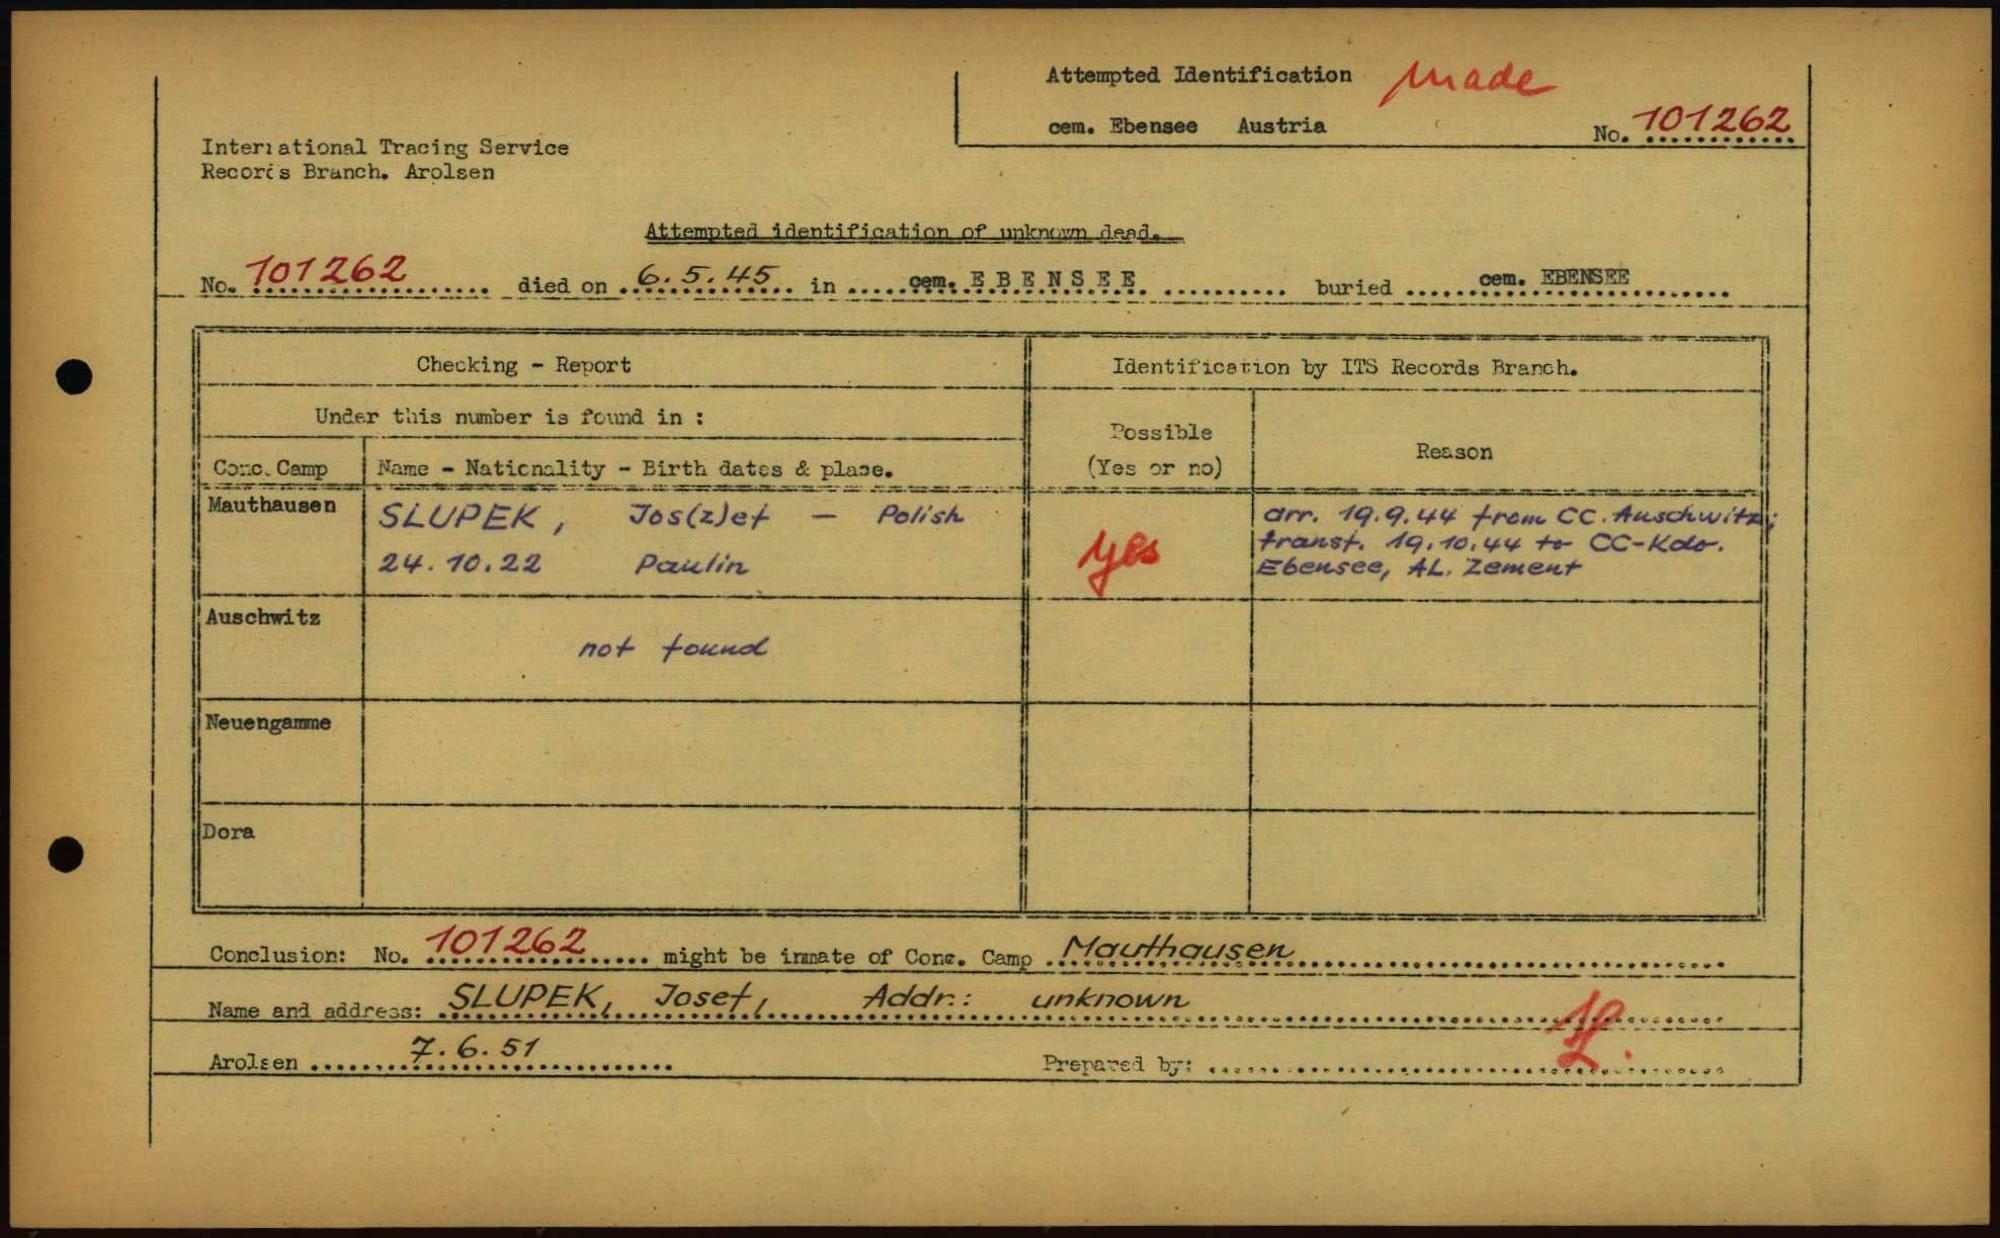 Attempted Identification made
cem. Ebensee Austria No. 101262
International Tracing Service
Records Branch. Arolsen
Attempted identification of unknown dead.
No. 101262 died on 6.5.45 in cem. EBENSEE buried cem. EBENSEE
Checking - Report
Identification by ITS Records Branch.
Under this number is found in :
Possible
(Yes or no)
Reason
Conc. Camp
Name - Nationality - Birth dates & place.
Mauthausen
SLUPEK, Jos(z)ef - Polish
24.10.22 Paulin
yes
arr. 19.9.44 from CC. Auschwitz;
transf. 19.10.44 to CC-Kdo.
Ebensee, AL. Zement
Auschwitz
not found
Neuengamme
Dora
Conclusion: No. 101262 might be inmate of Conc. Camp Mauthausen
Name and address: SLUPEK, Josef, Addr.: unknown
Arolsen 7.6.51 Prepared by: